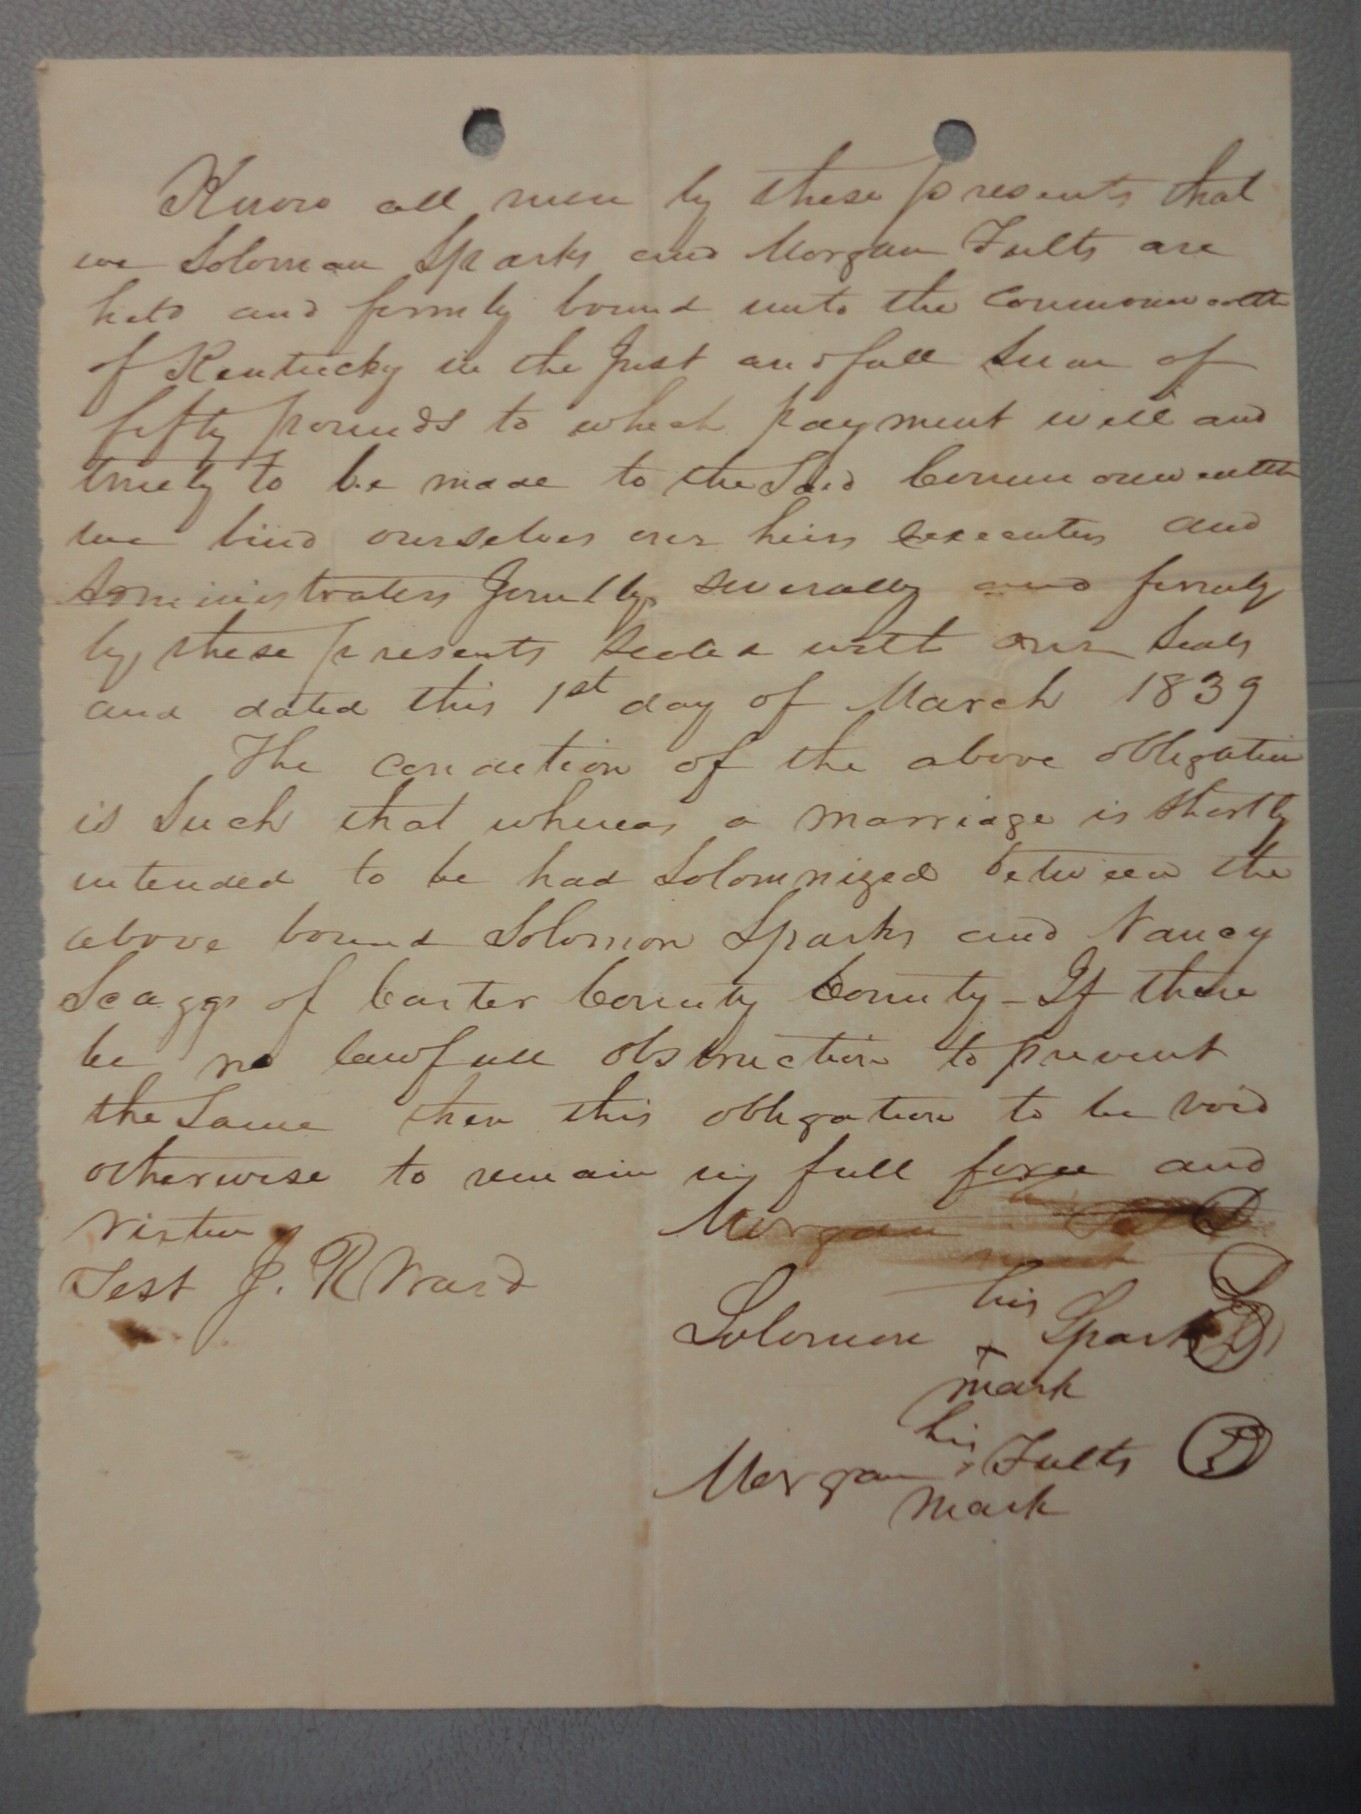 Know all men by these presents that
we Soloman Sparks and Morgan Fults are
held and firmly bound unto the Commonwealth
of Kentucky in the Just and full Sum of
fifty pounds to which payment well and
truely to be made to the Said Commonwealth
we bind ourselves our heirs executors and
Administrators Jointly severally and firmly
by these presents Sealed with our Seals
and dated this 1st day of March 1839
The condition of the above obligation
is Such that whereas a marriage is Shortly
intended to be had Solomnized between the
above bound Solomon Sparks and Nancy
Scaggs of Carter County County - If there
be no lawfull obstruction to prevent
the Same then this obligation to be void
otherwise to remain in full force and
virtue
Morgan
Test J. R Ward
his
Solomon + Sparks
mark
his
Morgan x Fults
mark